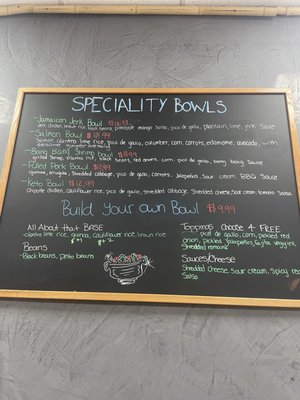 SPECIALITY BOWLS
- Jamaican Jerk Bowl
Jerk chicken, brown rice, black beans, pineapple mango salsa, pico de gallo, plantain, lime, jerk sauce
- Salmon Bowl $13.99
Salmon, cilantro lime rice, pico de gallo, cucumber, corn, carrots, edamame, avocado, with
sesame ginger dressing
- Bang Bang Shrimp bowl
grilled shrimp, cilantro rice, black beans, red onions, corn, pico de gallo, bang bang sauce
- Pulled Pork Bowl
quinoa, arugula, Shredded Cabbage, pico de gallo, Carrots, Jalapeños, Sour cream, BBQ Sauce
- Keto Bowl $12.99
Chipotle chicken, cauliflower rice, pico de gallo, shredded cabbage, Shredded cheese, sour cream, tomato salsa
Build your own Bowl $9.99
All About that BASE
- cilantro lime rice, quinoa, cauliflower rice, brown rice
Beans
- Black beans, pinto beans
Toppings choose 4 FREE
pico de gallo, corn, pickled red
onion, pickled jalapeños, fajita veggies,
Shredded romaine
Sauces/Cheese
Shredded Cheese, Sour cream, Spicy
Salsa